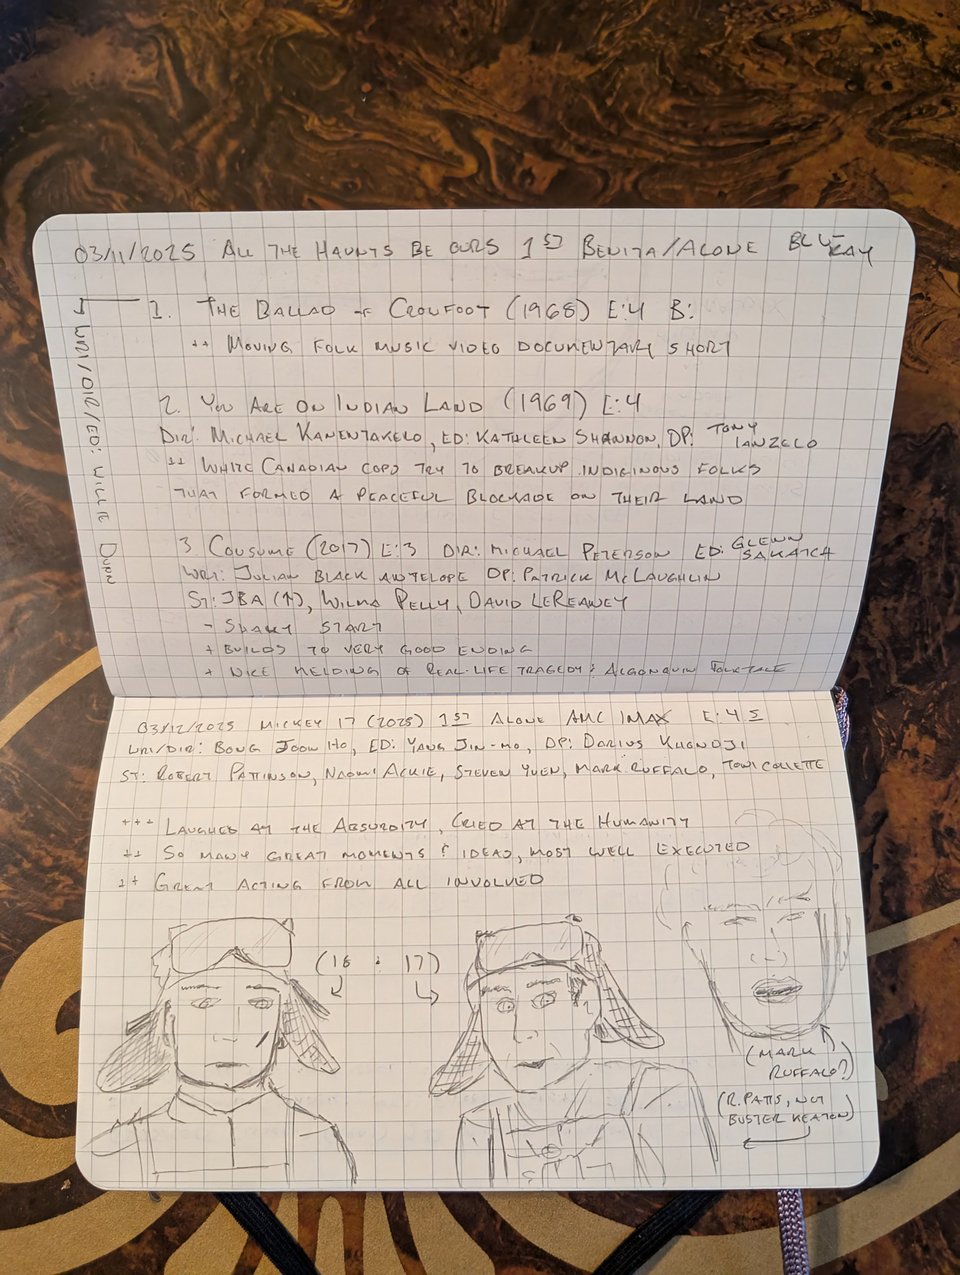 03/11/2025 ALL THE HAUNTS BE OURS 1ST BENITA/ALONE BLU-RAY
1. THE BALLAD OF CROWFOOT (1968) E:4 B:
WRI/DIR/ED: WILLIE DUNN
++ MOVING FOLK MUSIC VIDEO DOCUMENTARY SHORT
2. YOU ARE ON INDIAN LAND (1969) E:4
DIR: MICHAEL KANENTAKERO, ED: KATHLEEN SHANNON, DP: TONY IANZELO
++ WHITE CANADIAN COPS TRY TO BREAKUP INDIGINOUS FOLKS
THAT FORMED A PEACEFUL BLOCKADE ON THEIR LAND
3. COUSUME (2017) E:3 DIR: MICHAEL PETERSON ED: GLENN SAKATCH
WRI: JULIAN BLACK ANTELOPE DP: PATRICK McLAUGHLIN
ST: JBA (↑), WILMA PELLY, DAVID LEREANEY
- SHAKY START
+ BUILDS TO VERY GOOD ENDING
+ NICE MELDING OF REAL-LIFE TRAGEDY & ALGONQUIN FOLKTALE
03/12/2025 MICKEY 17 (2025) 1ST ALONE AMC IMAX E:4.5
WRI/DIR: BONG JOON HO, ED: YANG JIN-MO, DP: DARIUS KHONDJI
ST: ROBERT PATTINSON, NAOMI ACKIE, STEVEN YUEN, MARK RUFFALO, TONI COLLETTE
+++ LAUGHED AT THE ABSURDITY, CRIED AT THE HUMANITY
++ SO MANY GREAT MOMENTS & IDEAS, MOST WELL EXECUTED
++ GREAT ACTING FROM ALL INVOLVED
(18 & 17)
(MARK
RUFFALO?)
(R. PATTS, NOT
BUSTER KEATON)